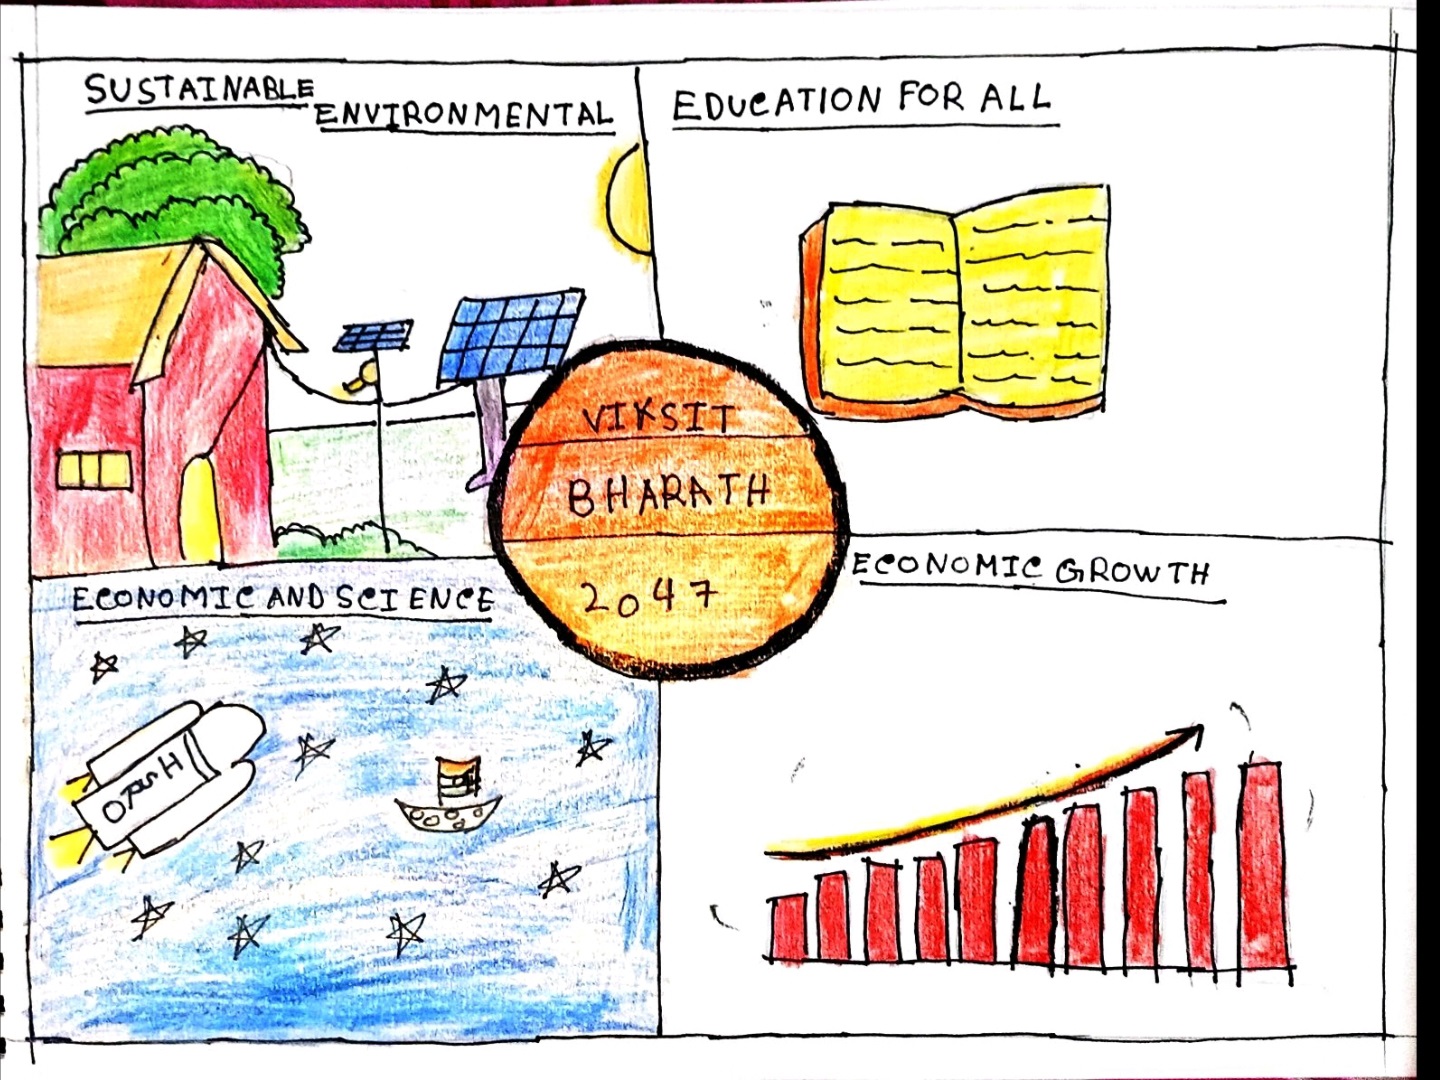 SUSTAINABLE
ENVIRONMENTAL
EDUCATION FOR ALL
VIKSIT
BHARATH
2047
ECONOMIC AND SCIENCE
ECONOMIC GROWTH